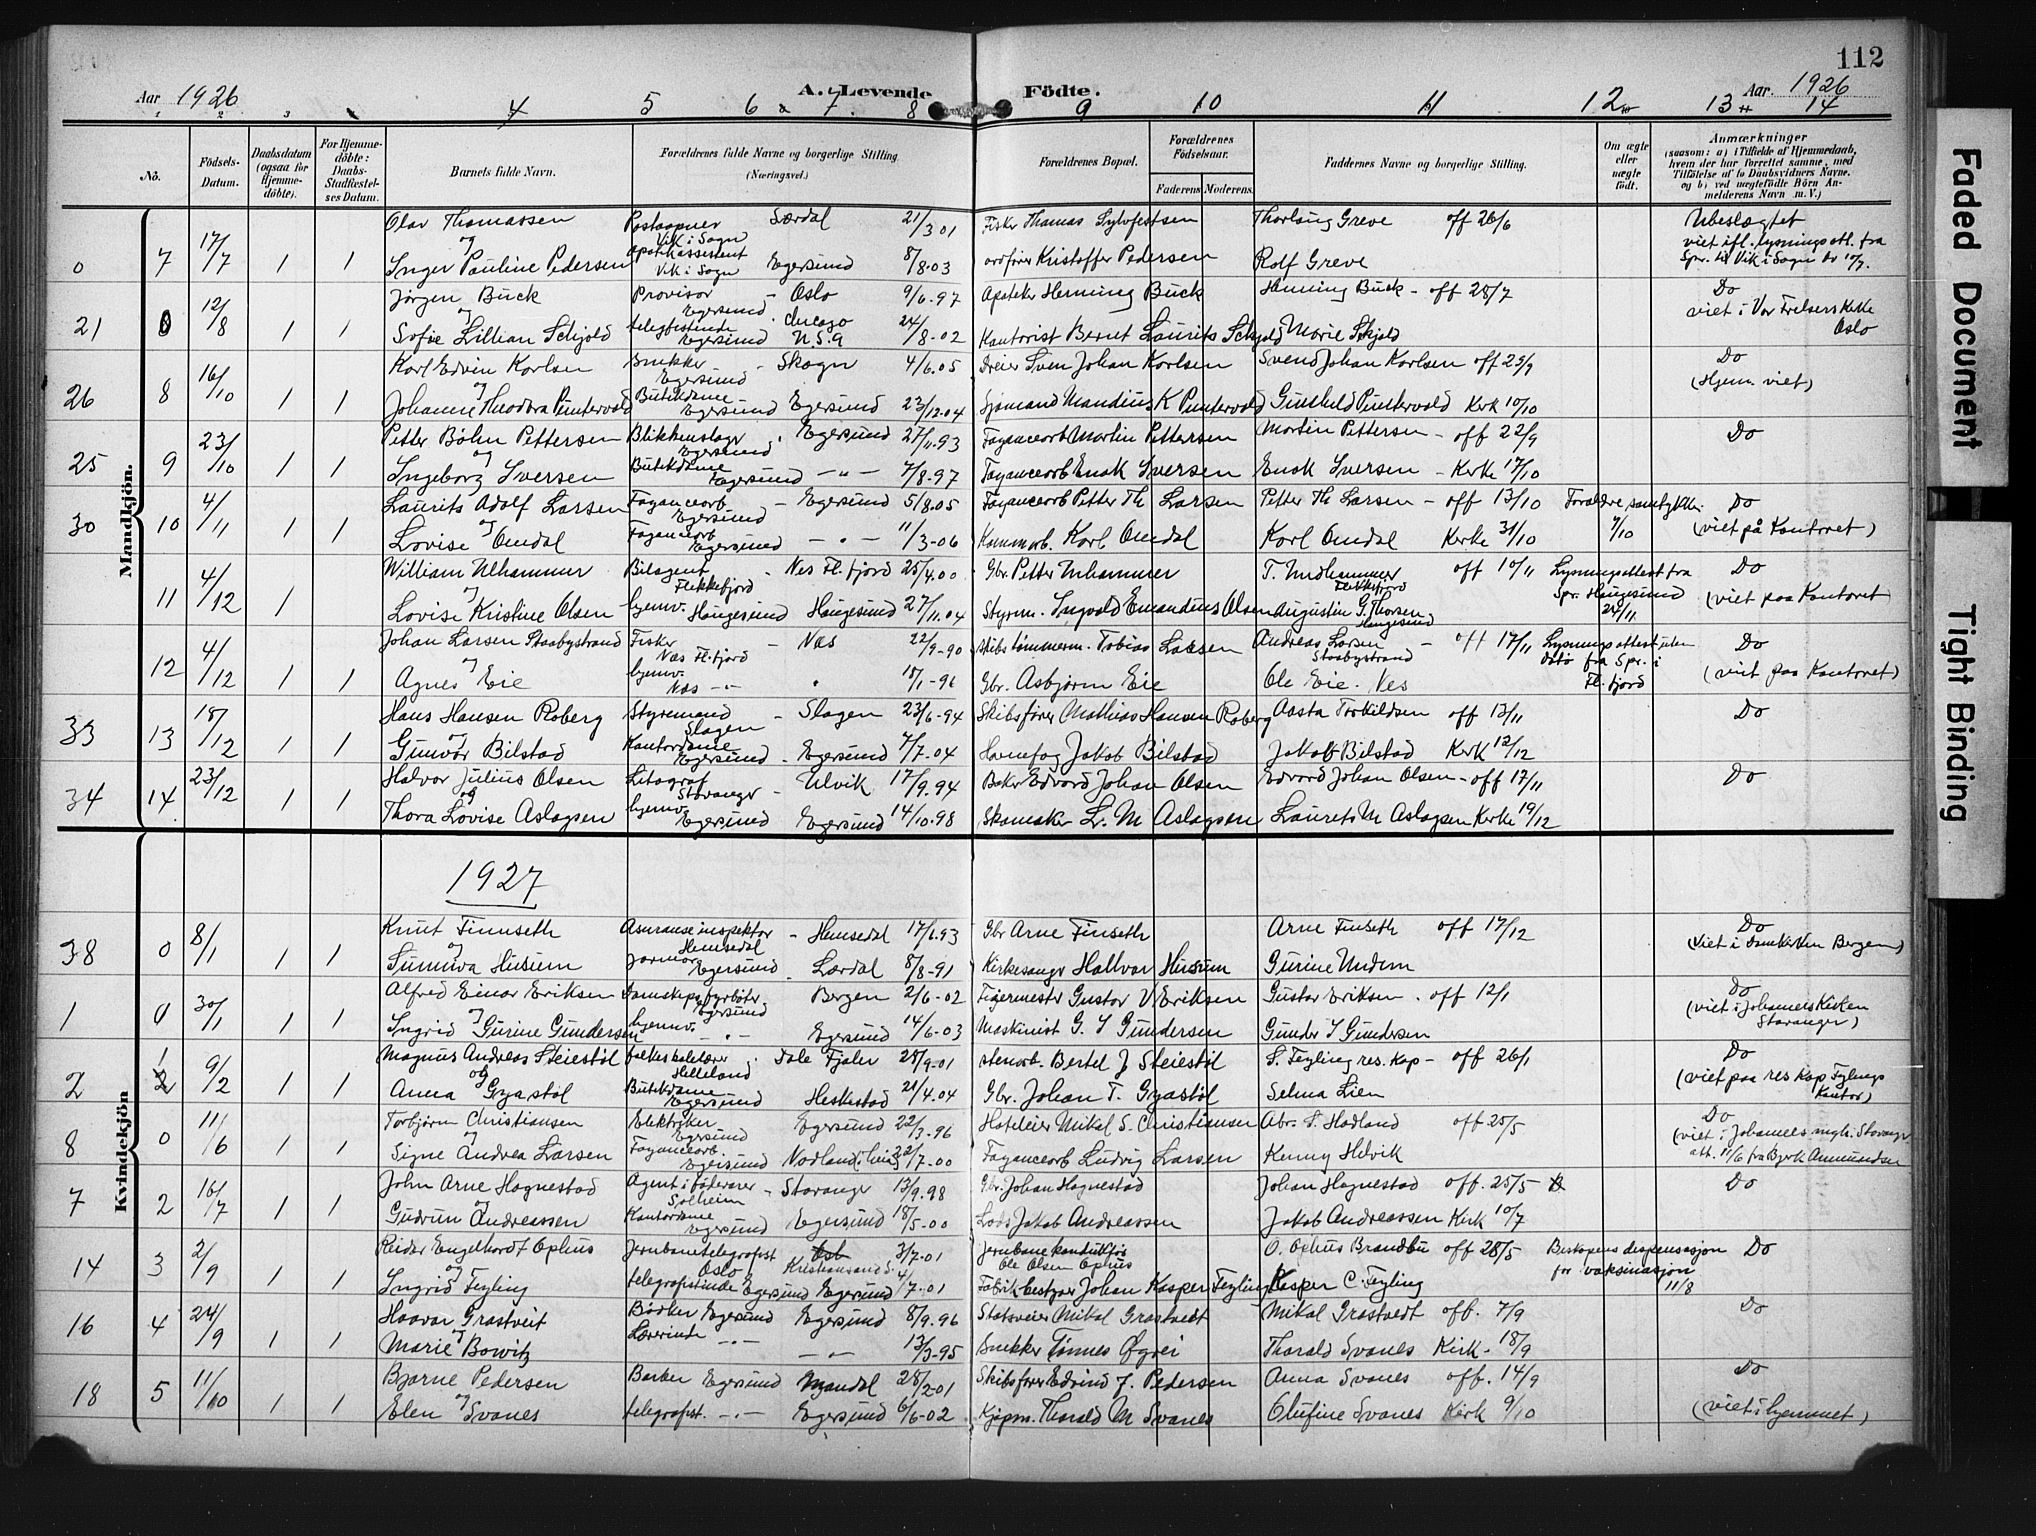 112
Aar 1926
A. Levende Fødte.
Aar. 1926
4 5 6 7. 8 9 10 11 12 13 14
No.
Fødsels-Datum.
Daabsdatum (ogsaa for Hjemmedöbte).
For Hjemmedöbte: Daabs-Stadfæstelses Datum.
Barnets fulde Navn.
Forældrenes fulde Navne og borgerlige Stilling (Næringsvei.)
Forældrenes Bopæl.
Forældrenes Födselsaar.
Faderens Moderens.
Faddernes Navne og borgerlige Stilling.
Om ægte eller uægte födt.
Anmærkninger
(saasom: a) i Tilfælde af Hjemmedaab, hvem der har forrettet samme, med Tilföielse af to Daabsvidners Navne, og b) ved uægtefödte Börn Anmelderens Navn m. V.)
Mandkjön.
Olav Thomassen Postaapner Særdal 21/3 01 Fisker Thomas Sylvfestsen Thorlaug Greve off 26/6 Ubeslægtet
0 7 17/7 1 1 og Vik i Sogn viet ifl. lysningsatt. fra
Inger Pauline Pedersen Apotekassistent Vik i Sogn Egersund 8/8.03 ordfører Kristoffer Pedersen Rolf Greve Spr. til Vik i Sogn av 10/7.
Jørgen Buck Provisor Egersund - Oslo 9/6-97 Apoteker Henning Buck Henning Buck - off 28/7 Do
21 0 12/8 1 1 og viet i Vor Frelsers Kirke Oslo
Sofie Lillian Schjold telegfistinde Egersund Chicago U.S.A 24/8-02 Kontorist Bernt Laurits Schjold Marie Skjold
Karl Edvin Karlsen Snekker Egersund - Skogn 4/6.05 Dreier Sven Johan Karlsen Svend Johan Karlsen off 25/9 Do
26 8 16/10 1 1 og (Hjem. viet)
Johanne Theodora Puntervold Butikdame Egersund Egersund 23/12.04 Sjømand Mandius K Puntervold Gunhild Puntervold Kerk 10/10
Petter Bøhn Pettersen Blikkenslager Egersund Egersund 27/11.93 Fayancearb Martin Pettersen Martin Pettersen - off 22/9 Do
25 9 23/10 1 1 og
Ingeborg Iversen Butikdame Egersund - " - 7/8-97 Fayancearb Enok Iversen Enok Iversen - Kerke 17/10
Laurits Adolf Larsen Fayancearb Egersund - Egersund 5/8.05 Fayancearb Petter Th Larsen Petter Th Larsen - off 13/10 Forældre samtykke 9/10 Do
30 10 4/11 1 1 og (viet på Kontoret)
Lovise Omdal Fayancearb Egersund - " - 11/3-06 Kommarb. Karl Omdal Karl Omdal Kerke 31/10
William Ulhammer Bilagent Flekkefjord - Nes Fl. fjord 25/4.00 Gbr. Petter Urhammer T. Urdhammer Flekkefjord off 10/11 Lysningsattest fra Spr. Haugesund 24/11 Do
11 4/12 1 og (viet paa Kontoret
Lovise Kristine Olsen hjemv. Haugesund Haugesund 27/11.04 Styrm. Ingvald Emandius Olsen Augustin G. Thorsen Haugesund
Johan Larsen Staabystrand Fisker Næs Fl. fjord - Næs 22/9-90 skibstømmerm. Tobias Larsen Andreas Larsen Staabystrand - off 17/11 Lysningsattest uten dato fra Spr. i Fl. fjord Do
12 4/12 1 1 og (viet paa Kontoret)
Agnes Eie hjemv. Næs - " - 18/1-96 Gbr. Asbjørn Eie Ole Eie. Nes
Hans Hansen Roberg Styrmand Slagen - Slagen 23/6-94 Skibsfører Mathias Hansen Roberg Aasta Torkildsen off 13/11 Do
33 13 18/12 1 1 og
Gunvor Bilstad Kontordame Egersund - Egersund 7/7.04 Havnefog Jakob Bilstad Jakob Bilstad Kerk 12/12
Halvor Julius Olsen Litograf Stavanger - Ulvik 17/9.94 Baker Edvard Johan Olsen Edvard Johan Olsen - off 17/11 Do
34 14 23/12 1 1 og
Thora Lovise Aslagsen hjemv. Egersund Egersund 14/10.98 Skomaker L. M Aslagsen Laurets M Aslagsen Kerke 19/12
1927
Kvindekjön
Knut Finnseth Assuranseinspektør Hemsedal - Hemsedal 17/1.93 Gbr Arne Finseth Arne Finseth off 17/12 Do
38 0 8/1 1 1 og (viet i Domkirken Bergen)
Sunniva Husum Jormor Egersund - Lærdal 8/8-91 Kirkesanger Hallvar Husum Gurine Undem
Alfred Einar Eriksen Damskipsfyrbøter Egersund Bergen 2/6-02 Figermester Gustav V Eriksen Gustav Eriksen. off 12/1 Do
1 0 30/1 1 1 og (viet i Johannes Kirken Stavanger)
Ingrid Gurine Gundersen hjemv. - " - Egersund 14/6-03 Maskinist G. S Gundersen Gunder S Gundersen
Magnus Andreas Steiestøl folkeskolelærer Helleland. Dale Fjaler 28/9-01 stenarb. Bertel J Steiestøl S. Feyling res. Kap - off 26/1 Do
2 1 9/2 1 1 og (viet paa res Kap Feylings Kontor)
Anna Gyastøl Butikdame Egersund Heskestad 21/4.04 Gbr. Johan T. Gyastøl Selma Lien
Torbjørn Christiansen Elektriker Egersund Egersund 22/3-96 Hoteleier Mikal S. Christiansen Abr. S. Hadland off 25/5 Do
8 0 11/6 1 1 og (viet i Johannes mgh. Stavanger att. 11/6 fra Bjerk Amundsen
Signe Andrea Larsen Fayancearb. Egersund Nodland 22/7-00 Fayancearb Ludvig Larsen Kenny Helvik
John Arne Hognestad Agent i fødevarer Solheim - Stavanger 13/9.98 Gbr. Johan Hognestad Johan Hognestad off. 25/5 Do
7 2 16/7 1 1 og
Gudrun Andreassen Kontordame Egersund Egersund 18/5-00 Lods Jakob Andreassen Jakob Andreassen Kirk 10/7
Reidar Engelhardt Ophus Jernbanetelegrafist Oslo Kristiansand S. 3/7-01 Jernbanekonduktør Ole Olsen Ophus O. Ophus Brandbu off 28/5 Bispens dispensasjon for vaksinasjon 11/8 Do
14 3 2/9 1 1 og
Ingrid Feyling telegrafistinde Egersund Egersund 4/7-01 Fabrikbestyrer Johan Kasper Feyling Kasper C. Feyling
Haavar Grastveit Bødker Egersund Egersund 8/9.96 Slotsveier Mikal Grastvedt Mikal Grastvedt off. 7/9 Do
16 4 24/9 1 1 og
Marie Bowitz Lærerinde - " - - " - 13/3-95 Snekker Tønnes Øgrei Thorald Svanes Kirk - 18/9
Bjarne Pedersen Barber Egersund Mandal 28/2-01 Skibsfører Edvind J. Pedersen Anna Svanes off. 14/9 Do
18 5 11/10 1 1 og (viet i hjemmet)
Elen Svanes telegrafist. - " - Egersund 6/6-02 Kjøpm. Thorald M Svanes Olufine Svanes Kirk 9/10
Faded Document
Tight Binding